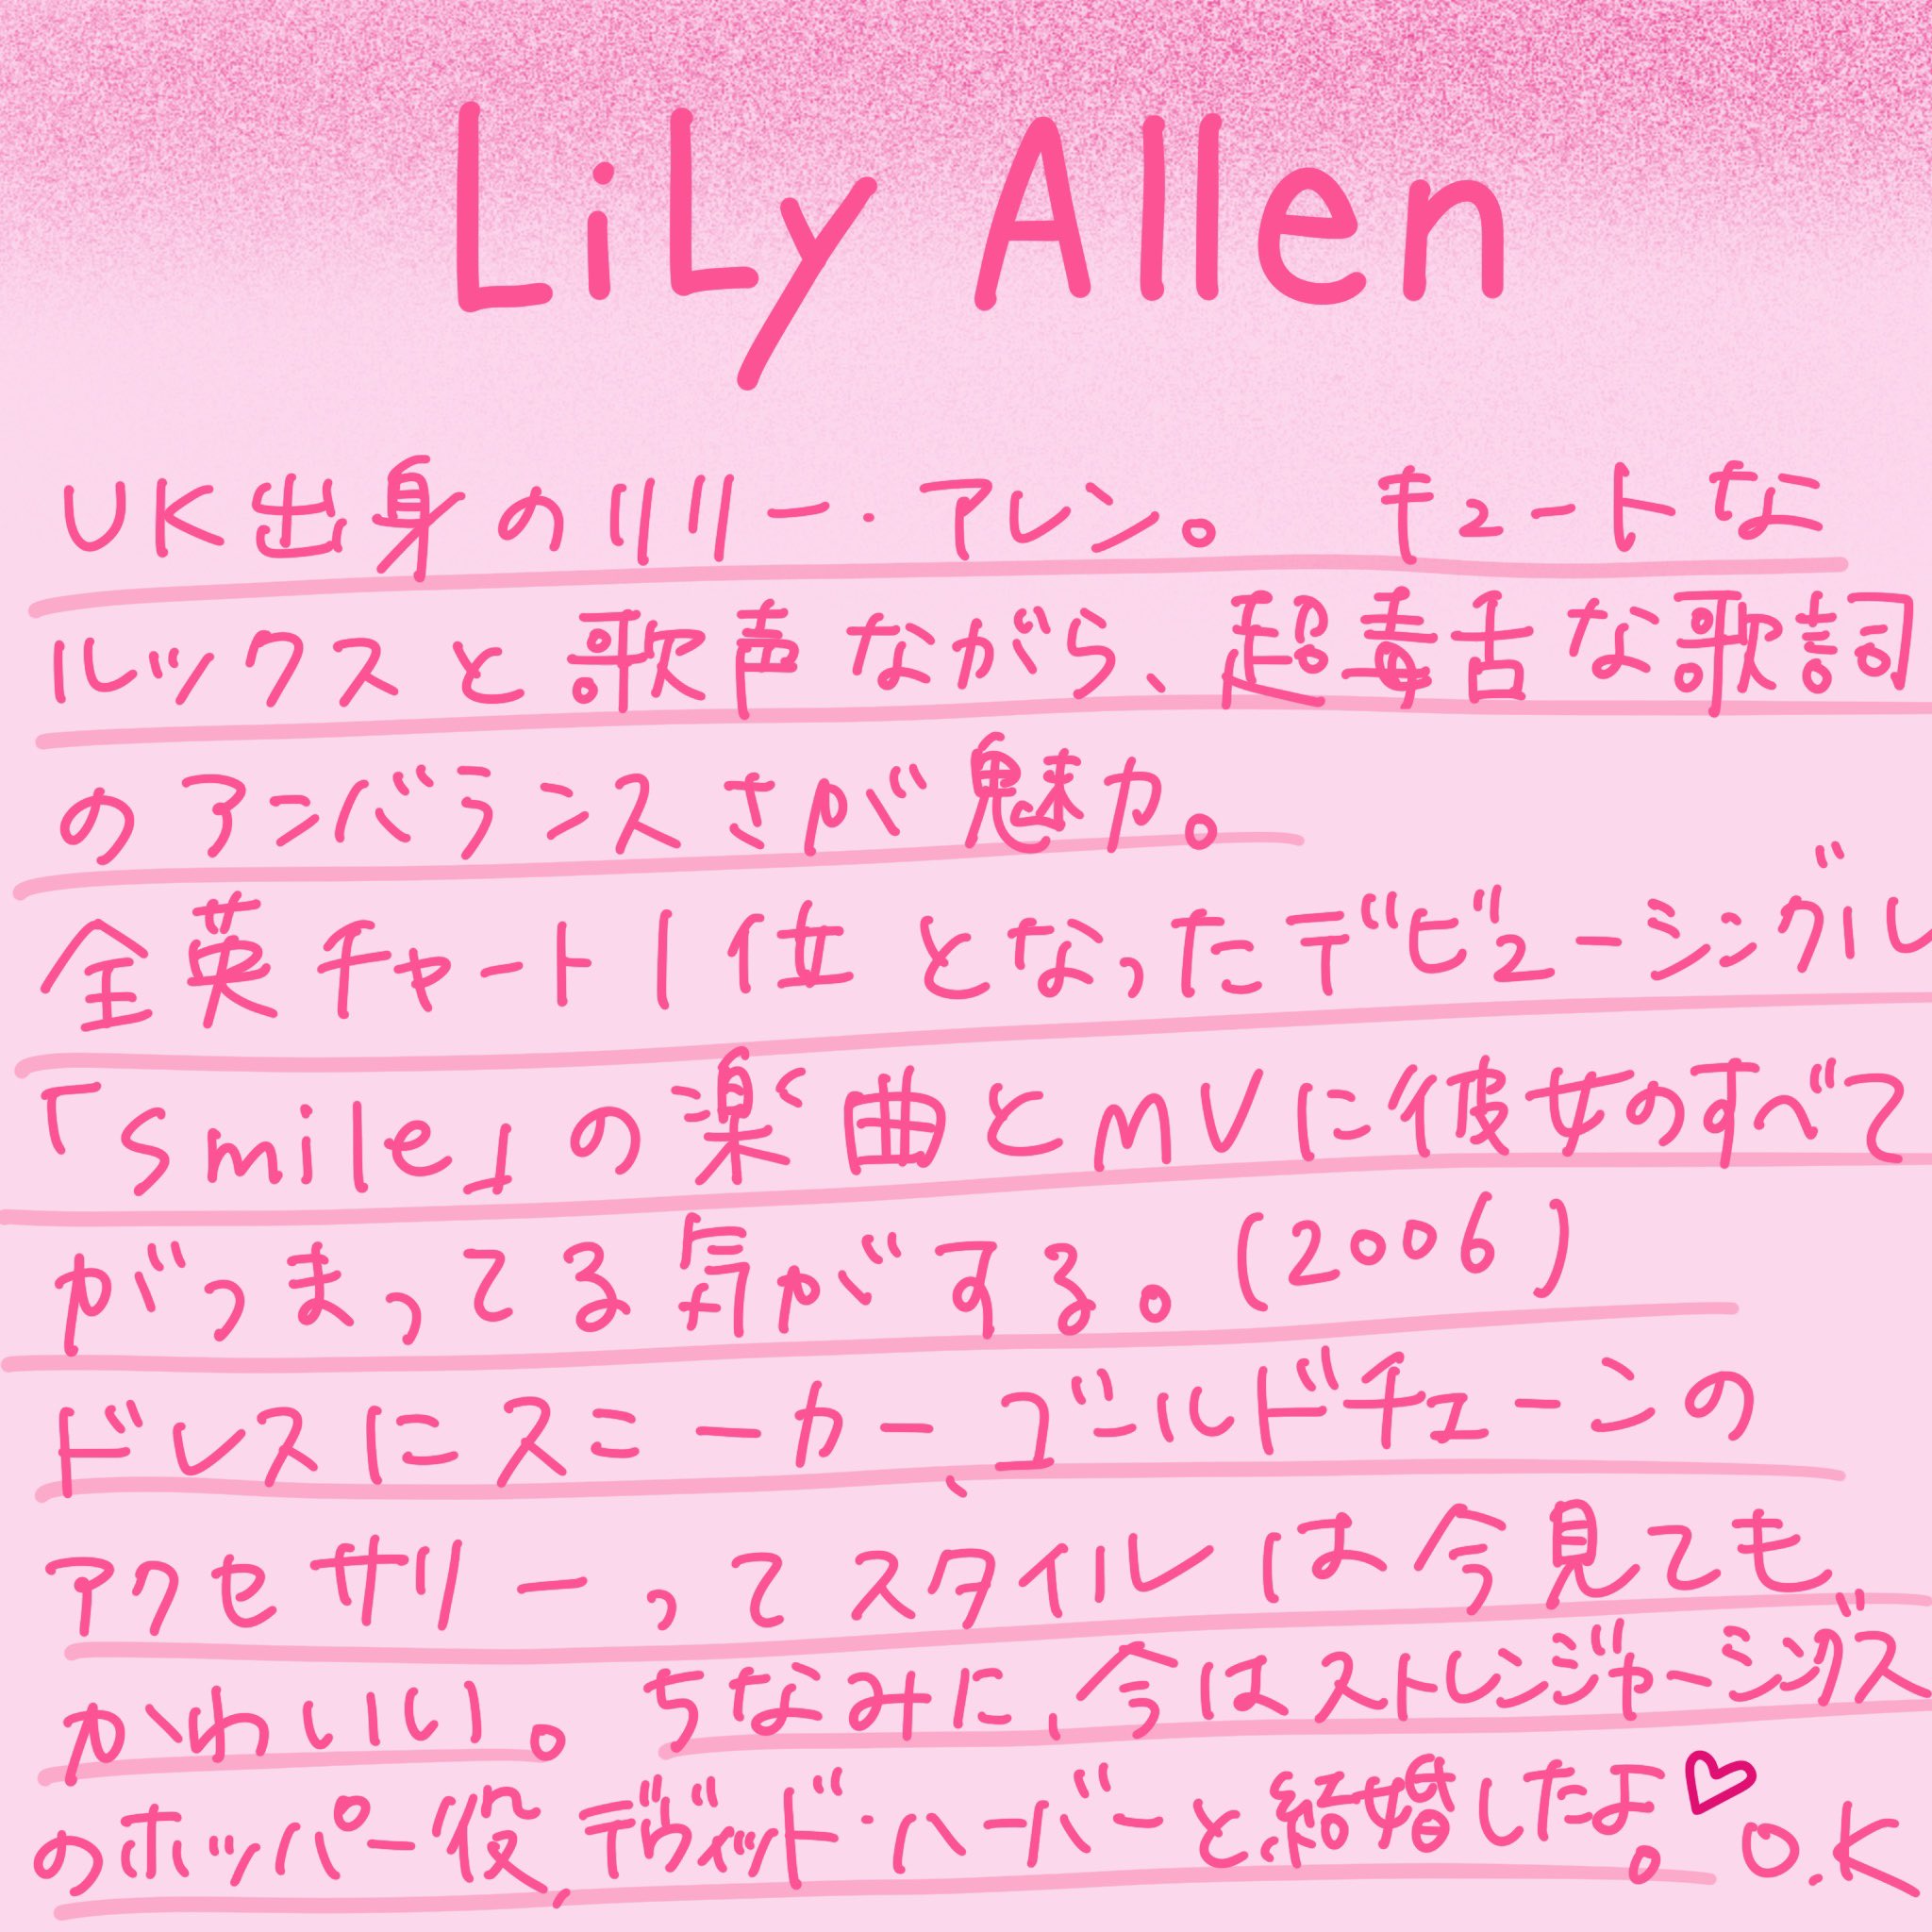 LiLy Allen
UK出身のリリー・アレン。 キュートな
ルックスと歌声ながら、超毒舌な歌詞
のアンバランスさが魅力。
全英チャート1位となったデビューシングル
「Smile」の楽曲とMVに彼女のすべて
がつまってる気がする。(2006)
ドレスにスニーカー、ゴールドチェーンの
アクセサリーってスタイルは今見ても
かわいい。ちなみに、今はストレンジャーシングス
のホッパー役、デヴィッド・ハーバーと結婚したよ。♡ O.K